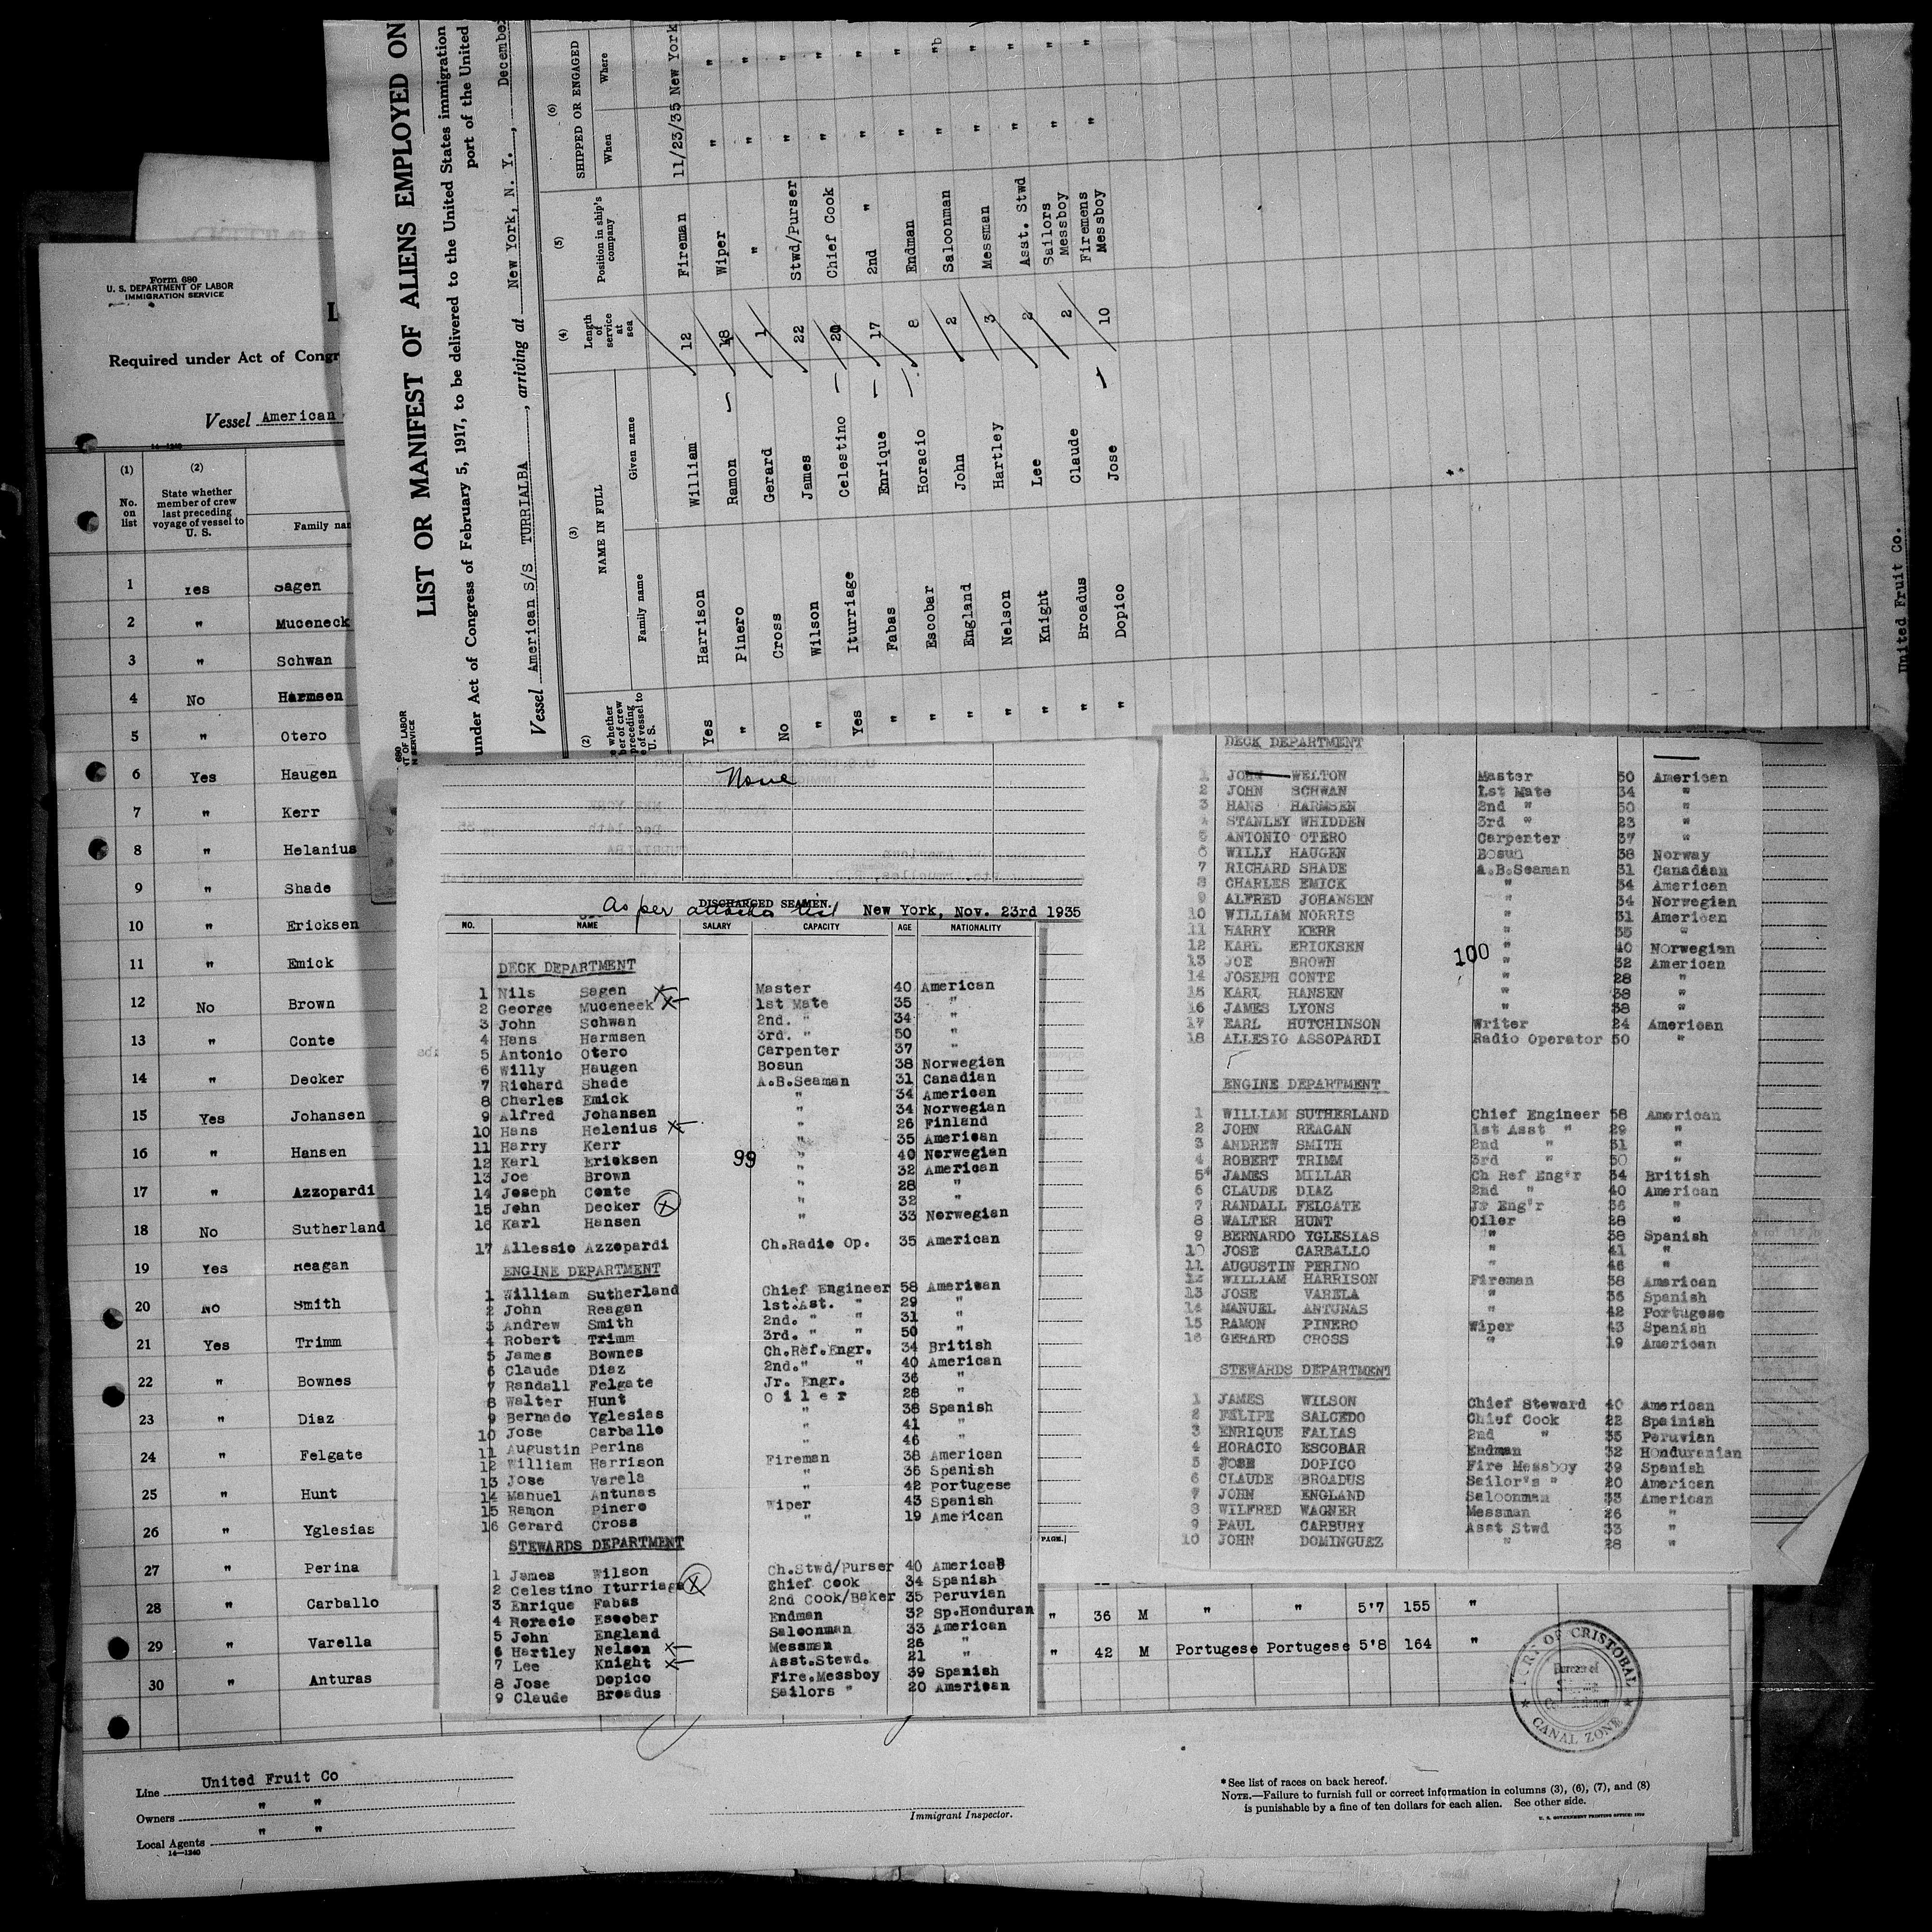 Form 680
U. S. DEPARTMENT OF LABOR
IMMIGRATION SERVICE
Required under Act of Congr
Vessel American
14—1240
(1) (2)
No. on list
State whether member of crew last preceding voyage of vessel to U. S.
Family nam
1 Yes Sagen
2 " Muceneck
3 " Schwan
4 No Harmsen
5 " Otero
6 Yes Haugen
7 " Kerr
8 " Helanius
9 " Shade
10 " Ericksen
11 " Emick
12 No Brown
13 " Conte
14 " Decker
15 Yes Johansen
16 " Hansen
17 " Azzopardi
18 No Sutherland
19 Yes Reagan
20 No Smith
21 Yes Trimm
22 " Bownes
23 " Diaz
24 " Felgate
25 " Hunt
26 " Yglesias
27 " Perina
28 " Carballo
29 " Varella
30 " Anturas
" 36 M " " 5'7 155 "
" 42 M Portugese Portugese 5'8 164 "
Line United Fruit Co
Owners " "
Local Agents " "
14—1240
Immigrant Inspector.
* See list of races on back hereof.
NOTE.—Failure to furnish full or correct information in columns (3), (6), (7), and (8)
is punishable by a fine of ten dollars for each alien. See other side.
U. S. GOVERNMENT PRINTING OFFICE:
OF CRISTOBAL
Bureau of
CANAL ZONE
LIST OR MANIFEST OF ALIENS EMPLOYED ON
under Act of Congress of February 5, 1917, to be delivered to the United States immigration
port of the United
Vessel American S/S TURRIALBA, arriving at New York, N. Y., December
680
NT OF LABOR
N SERVICE
(2) (3) (4) (5) (6)
e whether ber of crew preceding e of vessel to U. S.
NAME IN FULL
Family name Given name
Length of service at sea
Position in ship's company
SHIPPED OR ENGAGED
When Where
Yes Harrison William 12 Fireman 11/23/35 New York
" Pinero Ramon 18 Wiper " "
No Cross Gerard 1 " " "
" Wilson James 22 Stwd/Purser " "
Yes Iturriage Celestino 20 Chief Cook " "
" Fabas Enrique 17 2nd " " "
" Escobar Horacio 8 Endman " "
" England John 2 Saloonman " "
" Nelson Hartley 3 Messman " "
" Knight Lee 2 Asst. Stwd " "
" Broadus Claude 2 Sailors Messboy " "
" Dopico Jose 10 Firemens Messboy " "
United Fruit Co.
None
DISCHARGED SEAMEN.
As per attached list New York, Nov. 23rd 1935
NO. NAME SALARY CAPACITY AGE NATIONALITY
DECK DEPARTMENT
1 Nils Sagen Master 40 American
2 George Muceneek 1st Mate 35 "
3 John Schwan 2nd. " 34 "
4 Hans Harmsen 3rd. " 50 "
5 Antonio Otero Carpenter 37 "
6 Willy Haugen Bosun 38 Norwegian
7 Richard Shade A.B.Seaman 31 Canadian
8 Charles Emick " 34 American
9 Alfred Johansen " 34 Norwegian
10 Hans Helenius " 26 Finland
11 Harry Kerr " 35 American
12 Karl Ericksen " 40 Norwegian
13 Joe Brown " 32 American
14 Joseph Conte " 28 "
15 John Decker " 32 "
16 Karl Hansen " 33 Norwegian
99
17 Allessio Azzopardi Ch.Radio Op. 35 American
ENGINE DEPARTMENT
1 William Sutherland Chief Engineer 58 American
2 John Reagan 1st.Ast. " 29 "
3 Andrew Smith 2nd. " " 31 "
4 Robert Trimm 3rd. " " 50 "
5 James Bownes Ch.Ref.Engr. 34 British
6 Claude Diaz 2nd." " 40 American
7 Randall Felgate Jr. Engr. 36 "
8 Walter Hunt O i l e r 28 "
9 Bernado Yglesias " 38 Spanish
10 Jose Carballo " 41 "
11 Augustin Perina " 46 "
12 William Harrison Fireman 38 American
13 Jose Varela " 36 Spanish
14 Manuel Antunas " 42 Portugese
15 Ramon Pinero Wiper 43 Spanish
16 Gerard Cross " 19 American
STEWARDS DEPARTMENT
PAGE.
1 James Wilson Ch.Stwd/Purser 40 American
2 Celestino Iturriage Chief Cook 34 Spanish
3 Enrique Fabas 2nd Cook/Baker 35 Peruvian
4 Horacio Escobar Endman 32 Sp.Honduran
5 John England Saloonman 33 American
6 Hartley Nelson Messman 26 "
7 Lee Knight Asst.Stewd. 21 "
8 Jose Dopico Fire.Messboy 39 Spanish
9 Claude Broadus Sailors " 20 American
DECK DEPARTMENT
1 JOHN WELTON Master 50 American
2 JOHN SCHWAN 1st Mate 34 "
3 HANS HARMSEN 2nd " 50 "
4 STANLEY WHIDDEN 3rd " 23 "
5 ANTONIO OTERO Carpenter 37 "
6 WILLY HAUGEN Bosun 38 Norway
7 RICHARD SHADE A.B.Seaman 31 Canadian
8 CHARLES EMICK " 34 American
9 ALFRED JOHANSEN " 34 Norwegian
10 WILLIAM NORRIS " 31 American
11 HARRY KERR " 35 "
12 KARL ERICKSEN " 40 Norwegian
13 JOE BROWN " 32 American
14 JOSEPH CONTE " 28 "
15 KARL HANSEN " 38 "
16 JAMES LYONS " 38 "
17 EARL HUTCHINSON Writer 24 American
18 ALLESIO ASSOPARDI Radio Operator 50 "
100
ENGINE DEPARTMENT
1 WILLIAM SUTHERLAND Chief Engineer 58 American
2 JOHN REAGAN 1st Asst " 29 "
3 ANDREW SMITH 2nd " 31 "
4 ROBERT TRIMM 3rd " 50 "
5 JAMES MILLAR Ch Ref Eng'r 34 British
6 CLAUDE DIAZ 2nd " 40 American
7 RANDALL FELGATE Jr Eng'r 36 "
8 WALTER HUNT Oiler 28 "
9 BERNARDO YGLESIAS " 38 Spanish
10 JOSE CARBALLO " 41 "
11 AUGUSTIN PERINO " 46 "
12 WILLIAM HARRISON Fireman 38 American
13 JOSE VARELA " 36 Spanish
14 MANUEL ANTUNAS " 42 Portugese
15 RAMON PINERO Wiper 43 Spanish
16 GERARD CROSS " 19 American
STEWARDS DEPARTMENT
1 JAMES WILSON Chief Steward 40 American
2 FELIPE SALCEDO Chief Cook 22 Spainish
3 ENRIQUE FALIAS 2nd " 35 Peruvian
4 HORACIO ESCOBAR Endman 32 Honduranian
5 JOSE DOPICO Fire Messboy 39 Spanish
6 CLAUDE BROADUS Sailor's " 20 American
7 JOHN ENGLAND Saloonman 33 American
8 WILFRED WAGNER Messman 26 "
9 PAUL CARBURY Asst Stwd 33 "
10 JOHN DOMINGUEZ " 28 "